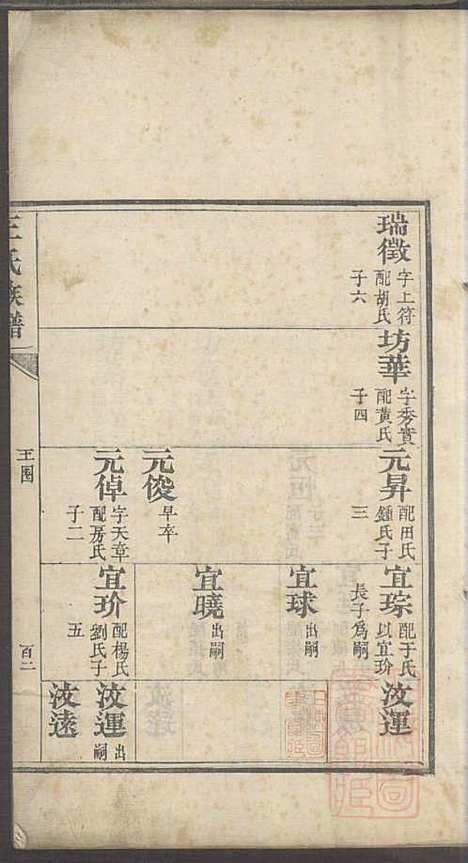 瑞徵
字上符
配胡氏
子六
坊華
字秀實
配黃氏
子四
元昇
配田氏
鍾氏子
三
元俊
早卒
元倬
字天章
配房氏
子二
宜琮
配于氏
以宜玠
長子爲嗣
宜球
出嗣
宜曉
出嗣
宜玠
配楊氏
劉氏子
五
汝運
汝運
出嗣
汝遠
王氏族譜
王圖
百二